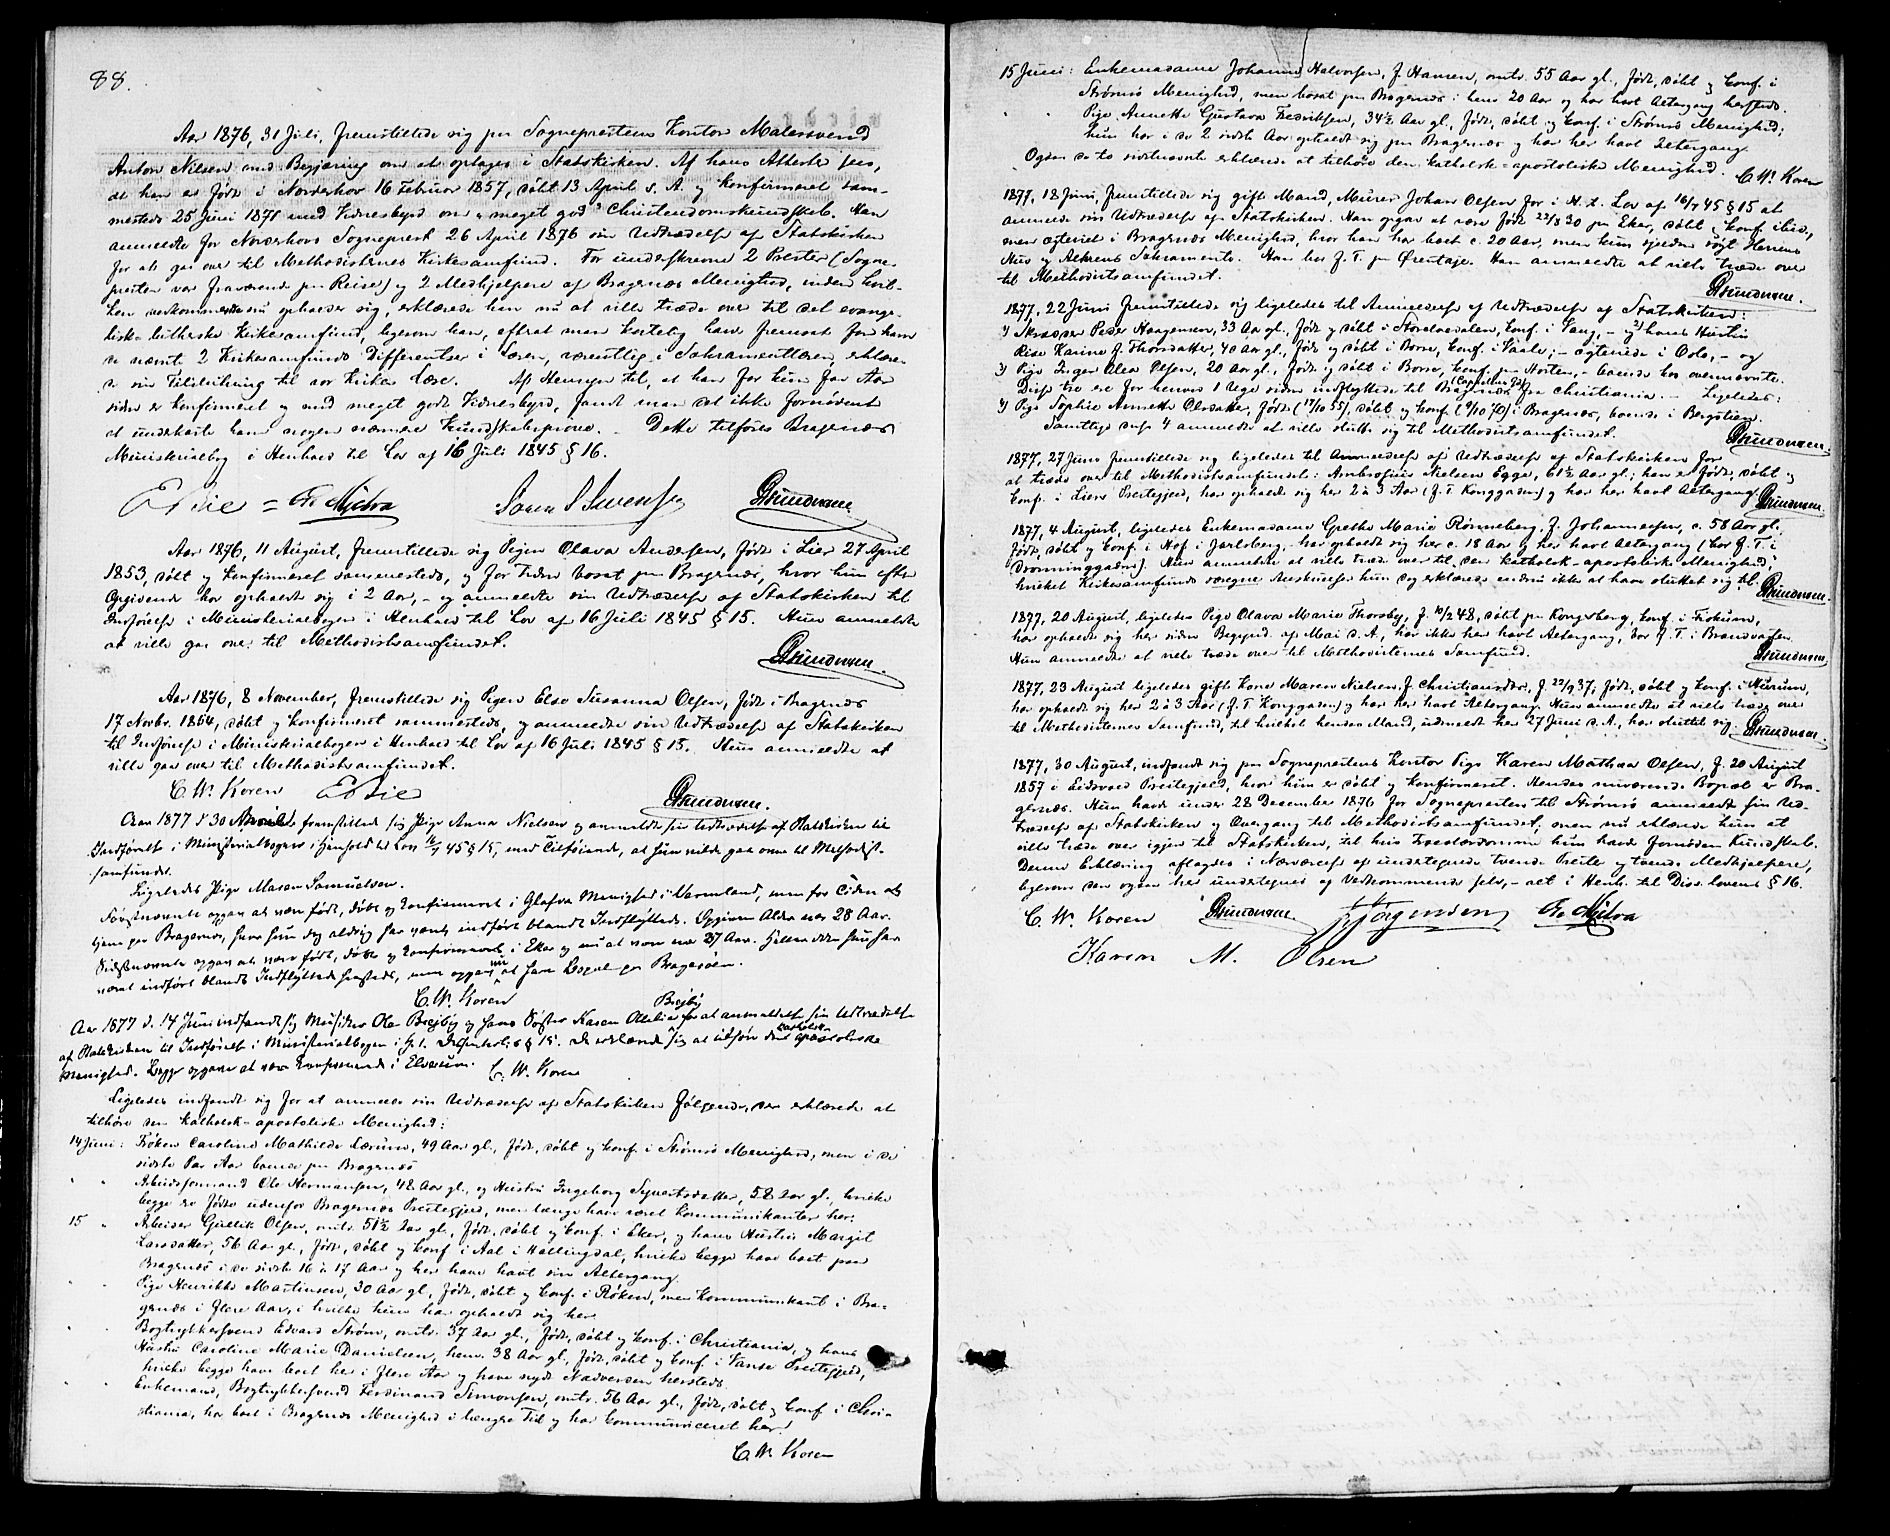 88.
Aar 1876, 31 Juli, fremstillede sig paa Sogneprestens Kontor Malersvend
Anton Nilsen med Begjæring om at optages i Statskirken. Af hans Attester sees,
at han er født i Norderhov 16 Februar 1857, døbt 13 April s. A. og konfirmeret sam-
mesteds 25 Juni 1871 med Vidnesbyrd om "meget god" Christendomskundskab. Han
anmeldte for Norderhovs Sogneprest 26 April 1876 sin Udtrædelse af Statskirken
for at gaa over til Methodisternes Kirkesamfund. For underskrevne 2 Prester (Sogne-
presten var fraværende paa Reise) og 2 Medhjelpere af Bragernes Menighed, inden hvil-
ken vedkommende nu opholder sig, erklærede han nu at ville træde over til det evange-
lisk-lutherske Kirkesamfund, ligesom han, efterat man kortelig havde foreholdt ham
de nævnte 2 Kirkesamfunds Differentser i Læren, væsentlig i Sakramentlæren, erklære-
de sin Tilslutning til vor Kirkes Lære. Af Hensyn til, at han for kun faa Aar
siden er konfirmeret og med meget godt Vidnesbyrd, fandt man det ikke fornødent
at underkaste ham nogen nærmere Kundskabsprøve. Dette tilføres Bragernes
Ministerialbog i Henhold til Lov af 16 Juli 1845 § 16.
E Bie = Chr Mjelva Søren S Svensen Grundvem
Aar 1876, 11 August, fremstillede sig Pigen Olava Andersen, født i Lier 27 April
1853, døbt og konfirmeret sammesteds, og for Tiden bosat paa Bragernes, hvor hun efter
Opgivende har opholdt sig i 2 Aar, - og anmeldte sin Udtrædelse af Statskirken til
Indførelse i Ministerialbogen i Henhold til Lov af 16 Juli 1845 § 15. Hun anmeldte
at ville gaa over til Methodistsamfundet.
Grundvem
Aar 1876, 8 November, fremstillede sig Pigen Else Susanna Olsen, født i Bragernes
17 Novbr. 1854, døbt og konfirmeret sammesteds, og anmeldte sin Udtrædelse af Statskirken
til Indførelse i Ministerialbogen i Henhold til Lov af 16 Juli 1845 § 15. Hun anmeldte at
ville gaa over til Methodistsamfundet.
C. W. Koren E Bie
Grundvem.
Aar 1877 d. 30 fremstillede sig Pige Anna Nielsen og anmeldte sin Udtrædelse af Statskirken til
Indførelse i Ministerialbogen i Henhold til Lov 16/7 45 § 15, med Tilføiende, at hun vilde gaa over til Methodist-
samfundet.
Ligeledes Pige Maren Samuelsen.
Førstnævnte opgav at være født, døbt og konfirmeret i Glafva Menighed i Vermland, men for Tiden at
tjene paa Bragernes, hvor hun dog aldrig har været indført blandt Indflyttede. Opgiven Alder var 28 Aar.
Sidstnævnte opgav at være født, døbt og konfirmeret i Eker og nu at være 27 Aar. Heller ikke hun har
været indført blandt Indflyttede herstedes, men opgav nu at have Bopæl paa Bragerøen.
C. W. Koren
Aar 1877 d. 14 Juni indfandt sig Musiker Ole Brejby og hans Søster Karen Otilie Brejby for at anmelde sin Udtrædelse
af Statskirken til Indførelse i Ministerialbogen i H. t. § 15. De erklærede sig at tilhøre den katholsk apostoliske
Menighed. Begge opgave at være konfirmerede i Elverum. C. W. Koren
Ligeledes indfandt sig for at anmelde sin Udtrædelse af Statskirken Følgende, der erklærede at
tilhøre den katholsk-apostoliske Menighed:
14 Juni: Frøken Caroline Mathilde Lærum, 49 Aar gl., født, døbt og konf. i Strømsø Menighed, men i de
sidste Par Aar boende paa Bragernes
" " Arbeidsformand Ole Hermansen, 48 Aar gl., og Hustru Ingeborg Syvertsdatter, 58 Aar gl., hvilke
begge ere fødte udenfor Bragernes Prestegjeld, men længe have været Kommunikanter her.
15 " Arbeider Gullik Olsen, omtr. 51½ Aar gl., født, døbt og konf. i Eker, og hans Hustru Margit
Larsdatter, 56 Aar gl., født, døbt og konf. i Aal i Hallingdal, hvilke begge have boet paa
Bragernes i de sidste 16 à 17 Aar og her have havt sin Altergang.
" " Pige Henrikke Martinsen, 30 Aar gl., født, døbt og konf. i Røken, men Kommunikant i Bra-
gernes i flere Aar, i hvilke hun har opholdt sig her.
" " Bogtrykkersvend Edvard Strøm, omtr. 37 Aar gl., født, døbt og konf. i Christiania, og hans
Hustru Caroline Marie Danielsen, henv. 38 Aar gl., født, døbt og konf. i Vanse Prestegjeld,
hvilke begge have boet her i flere Aar og have nydt Nadveren hersteds.
" " Enkemand, Bogtrykkersvend Ferdinand Simonsen, omtr. 56 Aar gl., født, døbt og konf. i Chri-
stiania, har boet i Bragernes Menighed i længre Tid og har kommuniceret her.
C. W. Koren
15 Juni: Enkemadame Johanne Halvorsen, f. Hansen, omtr. 55 Aar gl., født, døbt og konf. i
Strømsø Menighed, men bosat paa Bragernes i henv. 20 Aar og har havt Altergang hersteds.
" " Pige Annette Gustava Fredriksen, 34½ Aar gl., født, døbt og konf. i Strømsø Menighed;
hun har i de 2 sidste Aar opholdt sig paa Bragernes og har her havt Altergang.
Ogsaa de to sidstnævnte erklærede at tilhøre den katholsk-apostoliske Menighed. C. W. Koren
1877, 18 Juni, fremstillede sig gift Mand, Murer Johan Olsen for i H. t. Lov af 16/7 45 § 15 at
anmelde sin Udtrædelse af Statskirken. Han opgav at være født 22/8 30 paa Eker, døbt og konf. ibid.,
men ægteviet i Bragernes Menighed, hvor han har boet c. 20 Aar, men kun sjelden søgt Herrens
Hus og Alterens Sakramente. Han bor f. T. paa Ørentaje. Han anmeldte at ville træde over
til Methodistsamfundet.
Grundvem.
1877, 22 Juni fremstillede sig ligeledes til Anmeldelse af Udtrædelse af Statskirken:
1) Skrædder Peder Haagensen, 33 Aar gl., født og døbt i Storelvedalen, konf. i Vang, - og 2) hans Hustru
Lise Karine f. Thorsdatter, 40 Aar gl., født og døbt i Borre, konf. i Vaale; - ægteviede i Oslo, - og
3) Pige Inger Olea Olsen, 20 Aar gl., født og døbt i Borre, konf. paa Horten, - boende hos ovennævnte.
Disse tre ere for henved 1 Uge siden indflyttede til Bragernes fra Christiania. - Ligeledes:
4) Pige Sophie Annette Olsdatter, født (17/10 55), døbt og konf. (9/10 70) i Bragernes, boende i Bergstien.
Samtlige disse 4 anmeldte at ville slutte sig til Methodistsamfundet.
Grundvem.
1877, 27 Juni fremstillede sig ligeledes til Anmeldelse af Udtrædelse af Statskirken for
at træde over til Methodistsamfundet: Ambrosius Nielsen Egge, 61½ Aar gl.; han er født, døbt og
konf. i Liers Prestegjeld, har opholdt sig her 2 à 3 Aar (f. T. Konggaden) og har her havt Altergang. Grundvem.
1877, 4 August, ligeledes Enkemadame Grethe Marie Rønneberg, f. Johannesen, c. 58 Aar gl.,
født, døbt og konf. i Hof i Jarlsberg, har opholdt sig her c. 18 Aar og her havt Altergang (bor f. T. i
Dronninggaden). Hun anmeldte at ville træde over til den katholsk-apostoliske Menighed;
hvilket Kirkesamfunds hun dog erklærede endnu ikke at have sluttet sig til. Grundvem.
1877, 20 August, ligeledes Pige Olava Marie Thorsby, f. 10/2 48, døbt paa Kongsberg, konf. i Fiskum,
har opholdt sig her siden Begynd. af Mai d. A., har ikke her havt Altergang, bor f. T. i Brandvagten.
Hun anmeldte at ville træde over til Methodisternes Samfund.
Grundvem.
1877, 23 August ligeledes gifte Kone Maren Nielsen, f. Christiansdtr., f. 22/9 37, født, døbt og konf. i Hurum,
har opholdt sig her 2 à 3 Aar (f. T. Konggaden) og har her havt Altergang. Hun anmeldte at ville træde over
til Methodisternes Samfund, til hvilket hendes Mand, udmeldt her 27 Juni d. A., har sluttet sig. Grundvem.
1877, 30 August, indfandt sig paa Sogneprestens Kontor Pige Karen Mathea Olsen, f. 20 August
1857 i Eidsvold Prestegjeld, hvor hun er døbt og konfirmeret. Hendes nuværende Bopæl er Bra-
gernes. Hun havde under 28 December 1876 for Sognepresten til Strømsø anmeldt sin Ud-
trædelse af Statskirken og Overgang til Methodistsamfundet; men nu erklærede hun at
ville træde over igjen til Statskirken, til hvis Troeslærdomme hun havde fornøden Kundskab.
Denne Erklæring aflagdes i Nærværelse af undertegnede tvende Prester og tvende Medhjælpere,
ligesom den ogsaa her undertegnes af Vedkommende selv, - alt i Henh. til Diss. lovens § 16.
C. W. Koren Grundvem. Jørgensen Chr Mjelva
Karen M. Olsen